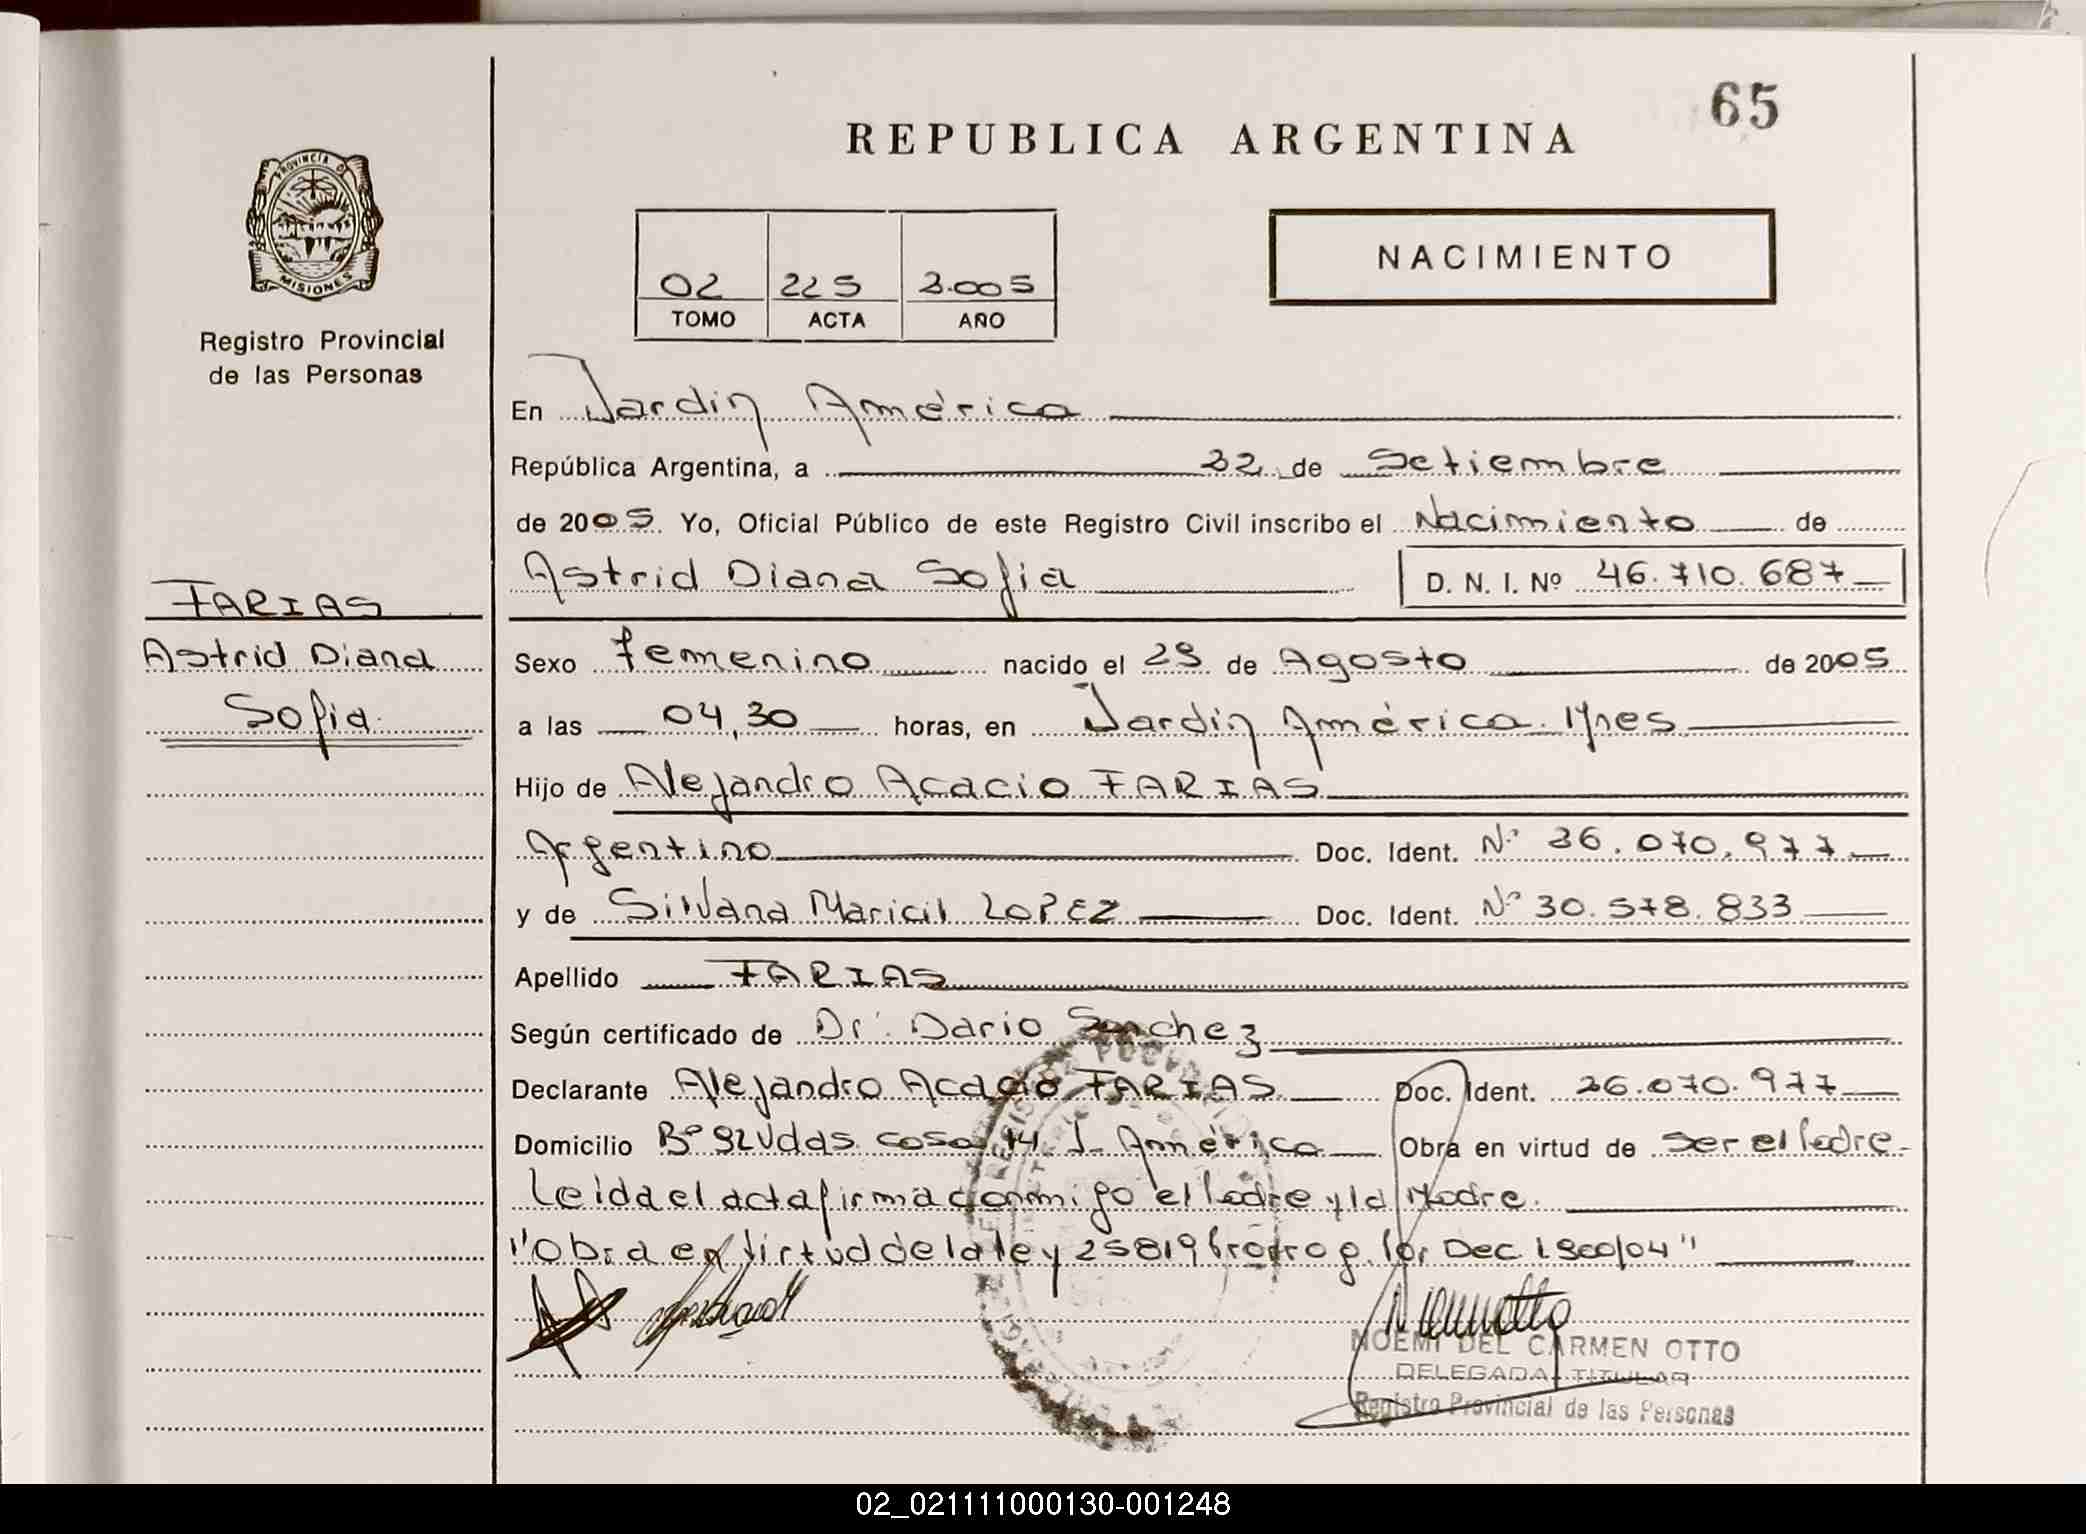 65
REPUBLICA ARGENTINA
PROVINCIA DE
MISIONES
Registro Provincial
de las Personas
NACIMIENTO
02 225 2.005
TOMO ACTA AÑO
En Jardin América
República Argentina, a 22 de Setiembre
de 2005. Yo, Oficial Público de este Registro Civil inscribo el Nacimiento de
Astrid Diana Sofia D. N. I. Nº 46.710.687
FARIAS
Astrid Diana
Sofia
Sexo femenino nacido el 29 de Agosto de 2005
a las 04,30 horas, en Jardin América. Mnes
Hijo de Alejandro Acacio FARIAS
Argentino Doc. Ident. Nº 26.070.977
y de Silvana Maricil LOPEZ Doc. Ident. Nº 30.578.833
Apellido FARIAS
Según certificado de Dr. Dario Sanchez
Declarante Alejandro Acacio FARIAS Doc. Ident. 26.070.977
Domicilio Bº 92 Vdas. casa 14 J. América Obra en virtud de ser el Padre
Leida el acta firma conmigo el Padre y la Madre.
"Obra en Virtud de la ley 25819 Prorrog. por Dec. 1900/04"
NOEMI DEL CARMEN OTTO
DELEGADA TITULAR
Registro Provincial de las Personas
02_021111000130-001248